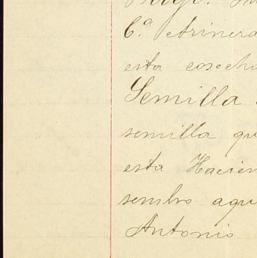 C.ª Arinera
esta cosech
Semilla
semilla qu
esta Hacien
sembro aqu
Antonio